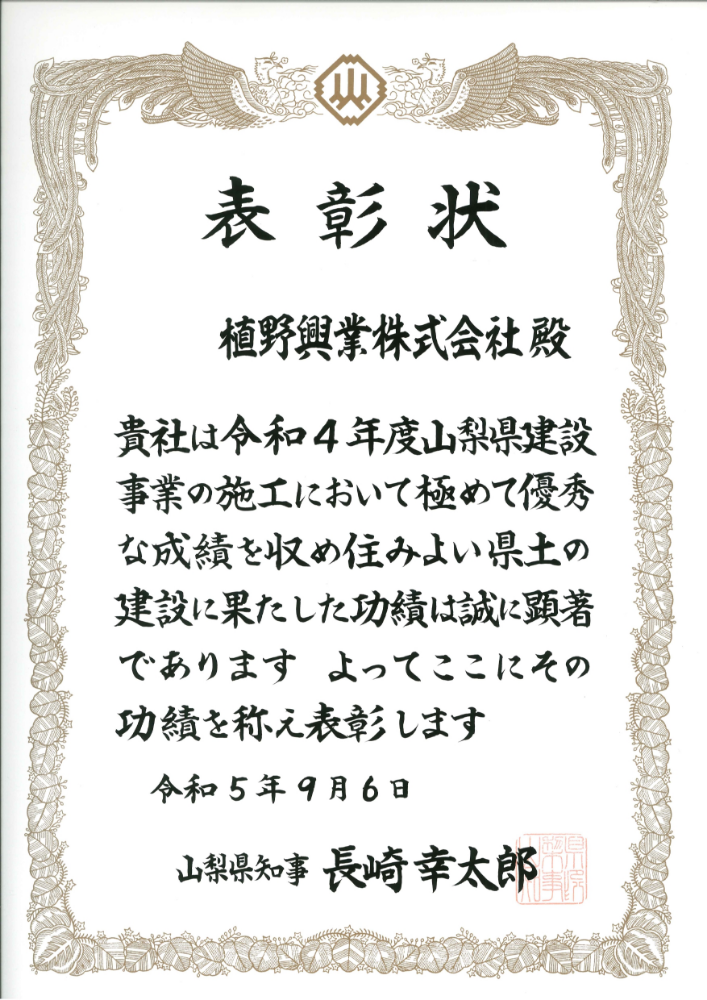 表彰状
植野興業株式会社殿
貴社は令和4年度山梨県建設
事業の施工において極めて優秀
な成績を収め住みよい県土の
建設に果たした功績は誠に顕著
であります　よってここにその
功績を称え表彰します
令和5年9月6日
山梨県知事 長崎幸太郎